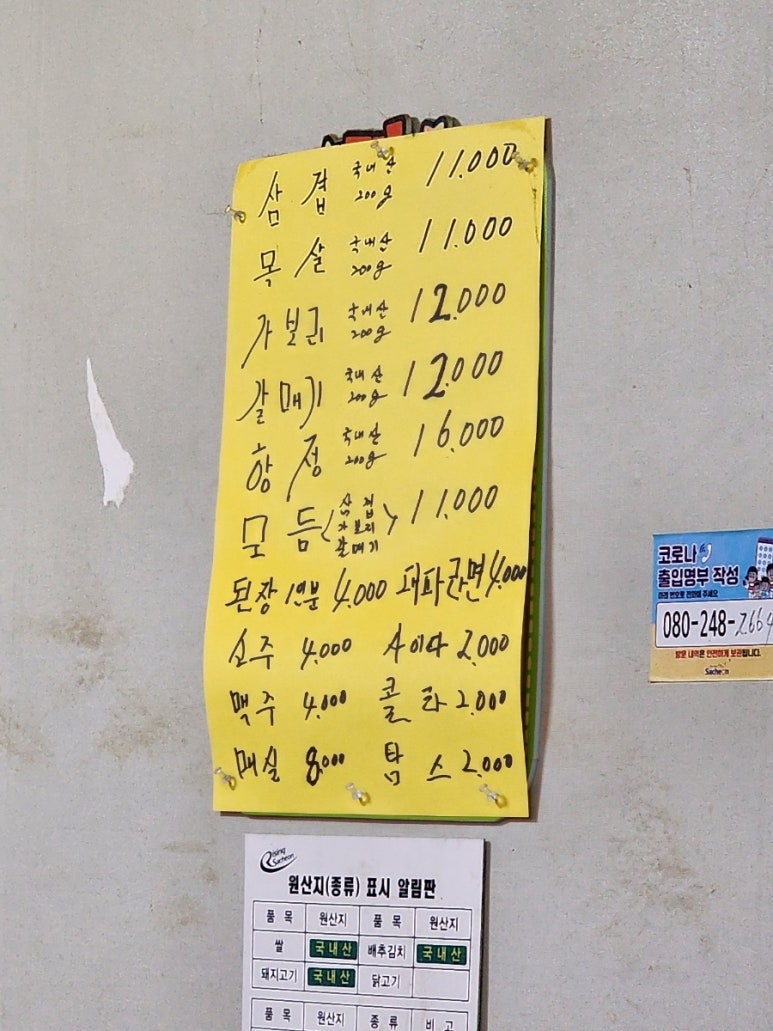 삼겹 국내산 200g 11.000
목살 국내산 200g 11.000
가브리 국내산 200g 12.000
갈매기 국내산 200g 12.000
항정 국내산 200g 16.000
모듬(삼겹 가브리 갈매기) 11.000
된장 1인분 4.000 대파라면 4.000
소주 4.000 사이다 2.000
맥주 4.000 콜라 2.000
매실 8.000 탐스 2.000
코로나
출입명부 작성
아래 번호로 전화해 주세요
080-248-2664
방문 내역은 안전하게 보관됩니다.
Sacheon
Rising Sacheon
원산지(종류) 표시 알림판
품목 원산지 품목 원산지
쌀 국내산 배추김치 국내산
돼지고기 국내산 닭고기
품목 원산지 종류 비고